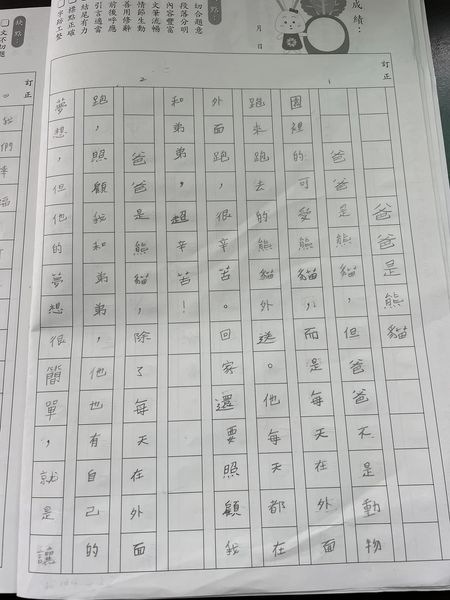 成績：
月　日
點
切合題意
段落分明
內容豐富
文筆流暢
情節生動
善用修辭
前後呼應
引言適當
結尾有力
標點正確
字跡工整
訂正
1
2
爸爸是熊貓
爸爸是熊貓，但爸爸不是動物
園裡的可愛熊貓，而是每天在外面
跑來跑去的熊貓外送。他每天都在
外面跑，很辛苦。回家還要照顧我
和弟弟，超辛苦！
爸爸是熊貓，除了每天在外面
跑，照顧我和弟，他也有自己的
夢想，但他的夢想很簡單，就是讓
缺點
文不切題
訂正